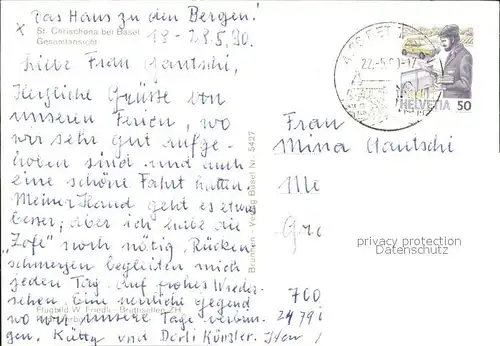 x das Haus zu den Bergen!
St. Chrischona bei Basel
Gesamtansicht
19-28.5.90.
Liebe Frau Gautschi,
Herzliche Grüsse von
unseren Ferien, wo
wir sehr gut aufge-
hoben sind und auch
eine schöne Fahrt hatten.
Meiner Hand geht es etwas
besser; aber ich habe die
„Zofe" noch nötig. Rücken-
schmerzen begleiten mich
jeden Tag. Auf frohes Wieder-
sehen. Eine herrliche Gegend
wo wir unsere Tage verbrin-
gen. Kütty und Dorli Künzler.
Flugbild W. Friedli, Brüttisellen ZH
Brunnen - Verlag Basel Nr. 5427
22.-5.90-17
HELVETIA 50
Frau
Mina Gautschi
privacy protection
Datenschutz
700
2479